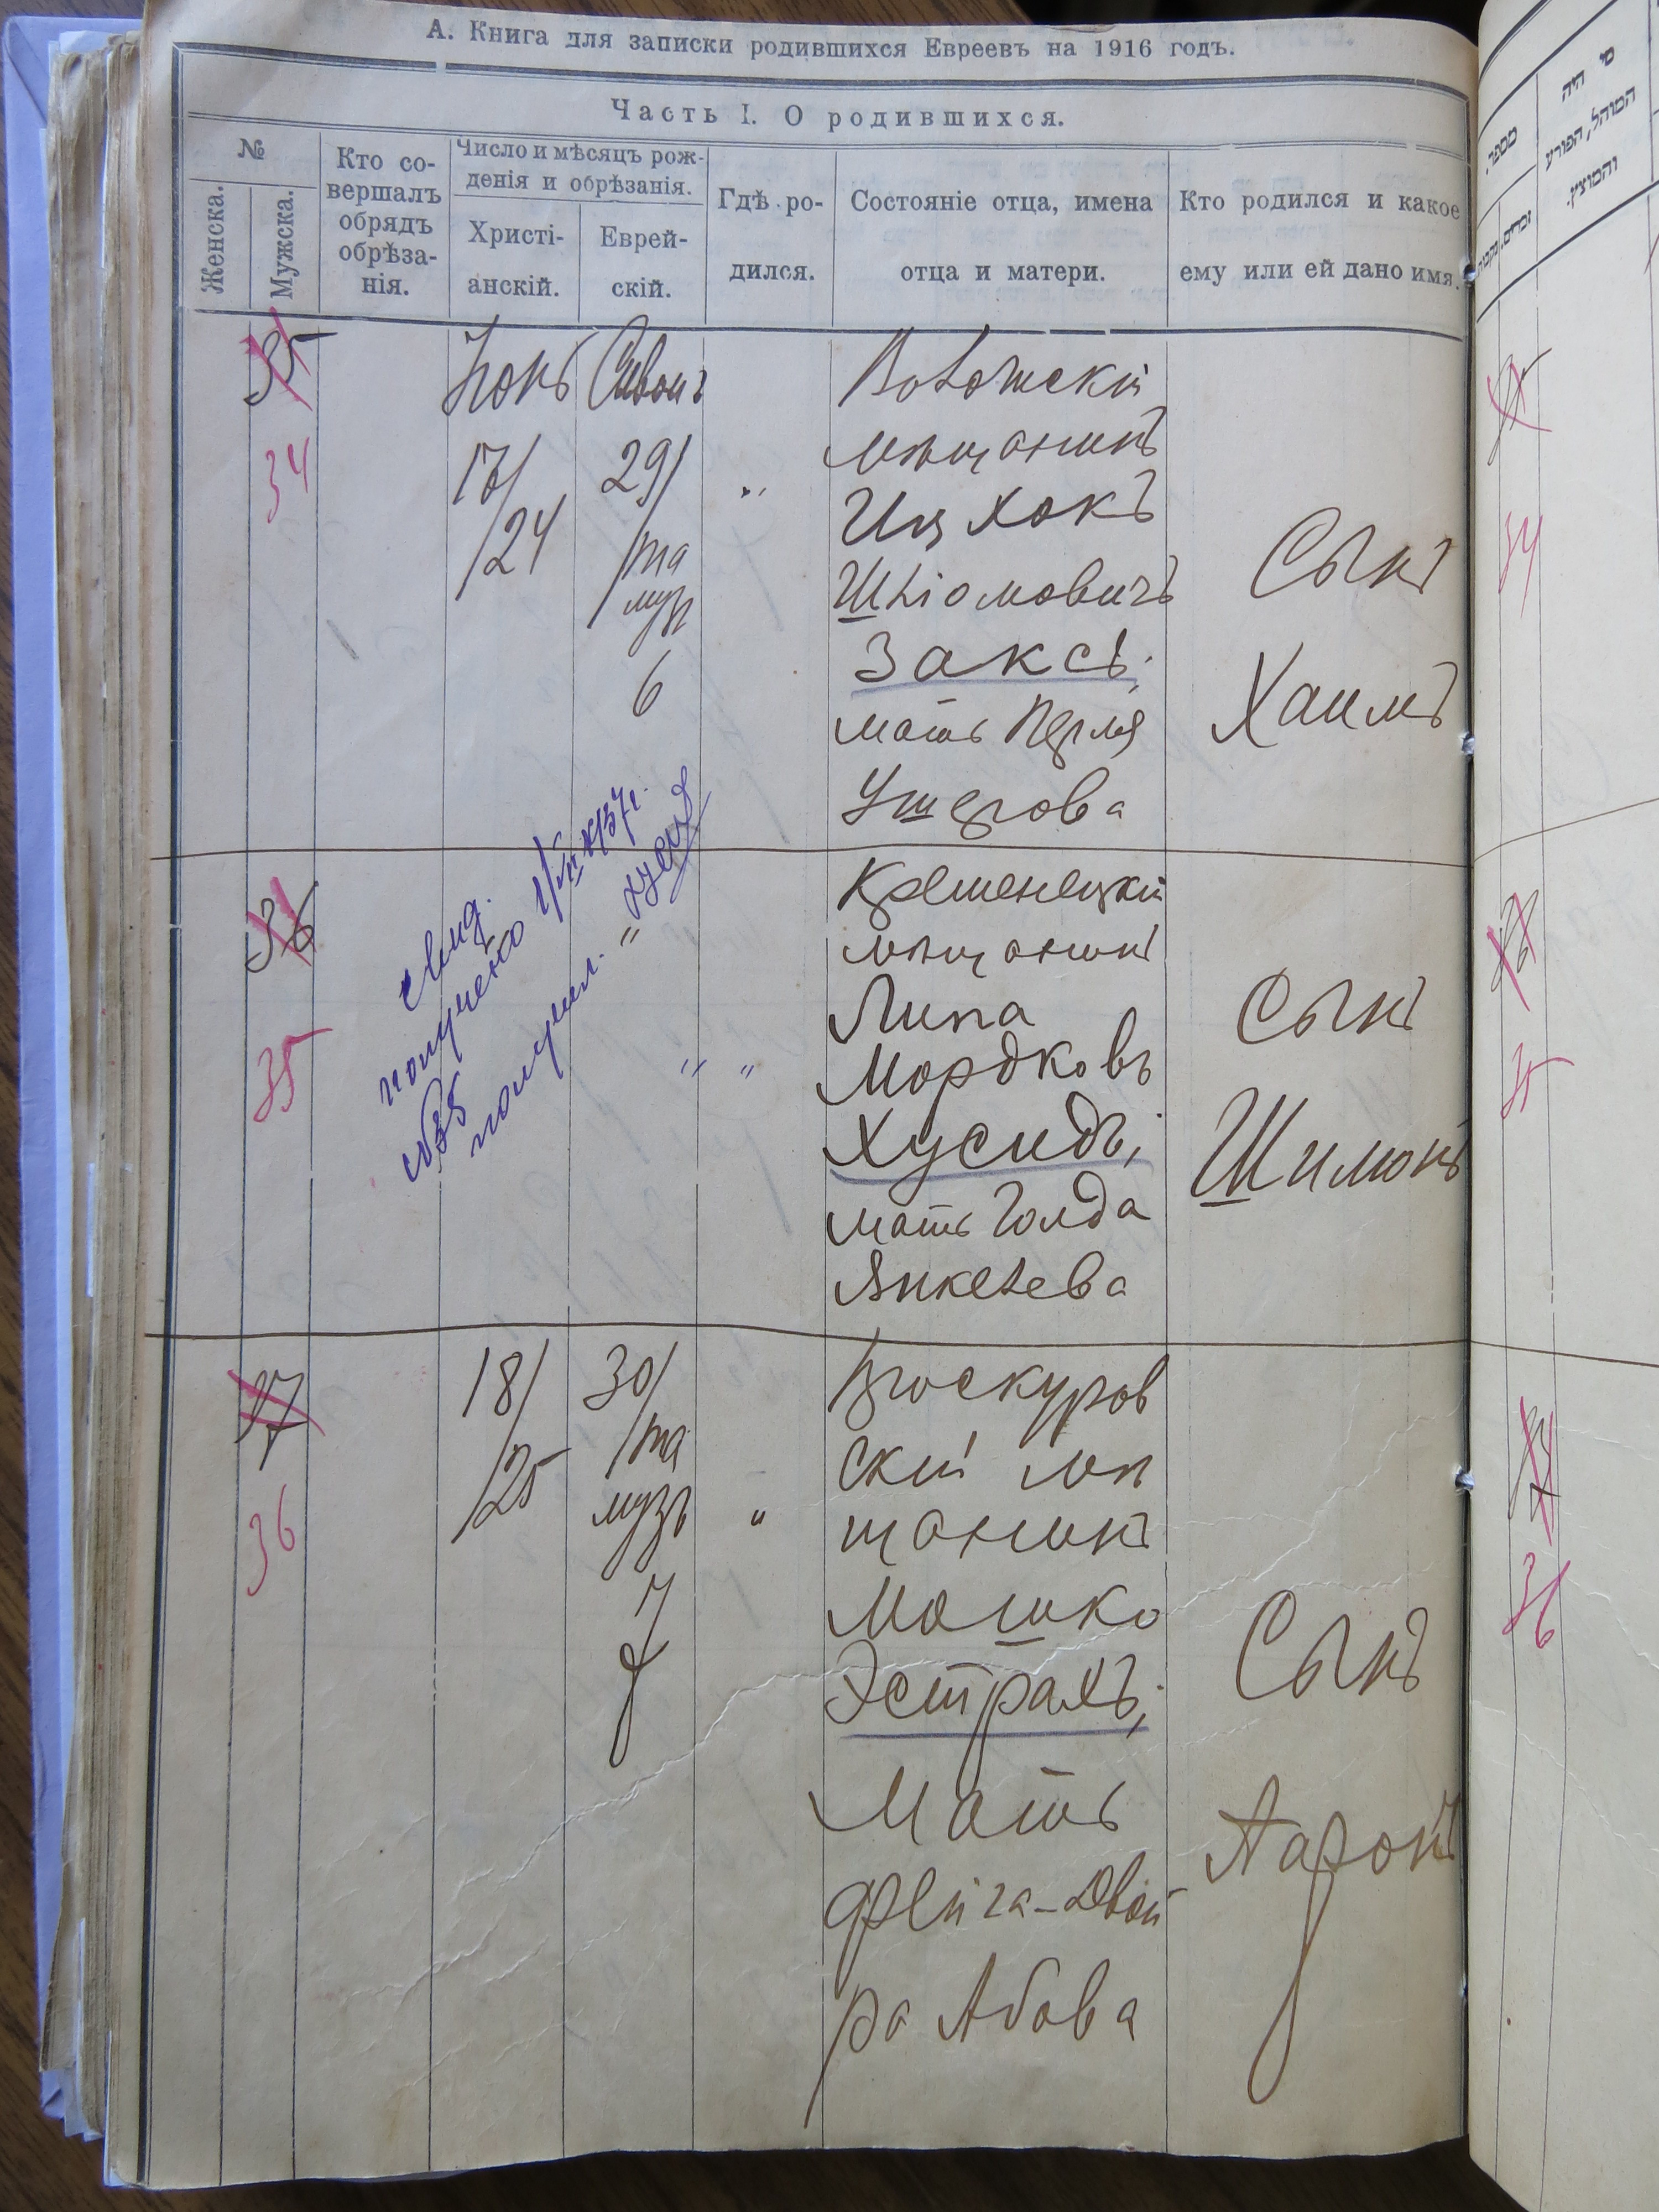 А. Книга для записки родившихся Евреевъ на 1916 годъ.
Часть I. О родившихся.
№
Женска.
Мужска.
Кто со-
вершалъ
обрядъ
обрѣза-
нія.
Число и мѣсяцъ рож-
денія и обрѣзанія.
Христі-
анскій.
Еврей-
скій.
Гдѣ ро-
дился.
Состояніе отца, имена
отца и матери.
Кто родился и какое
ему или ей дано имя.
35
34
Іюнь
17/
/24
Сивонъ
29/
/та
музъ
6
"
мѣщанинъ
Ицхокъ
Шліомовичъ
Заксъ.
мать Перля
Ушерова
Сынъ
Хаимъ
36
35
свид.
получено
№35
получил. "
" "
Кременецкій
мѣщанинъ
Липа
Мордковъ
Хусидъ,
мать Голда
Янкелева
Сынъ
Шимонъ
37
36
18/
/25
30/
/та
музъ
7
"
Проскуров
скій мѣ
щанинъ
Мошко
Эстрахъ,
Мать
Фрейга-Двой
ра Абова
Сынъ
Аронъ
מי היה
המוהל, הפורע
והמוצץ.
מספר.
זכרים.
35
34
36
35
37
36